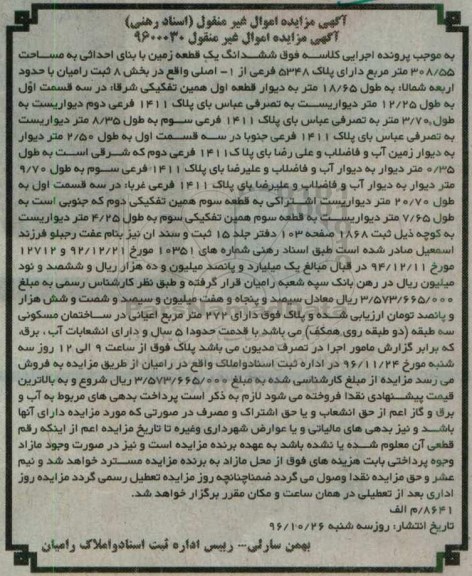 آگهی مزایده اموال غیر منقول (اسناد رهنی)
آگهی مزایده اموال غیر منقول ۹۶۰۰۰۳۰
به موجب پرونده اجرایی کلاسه فوق ششدانگ یک قطعه زمین با بنای احداثی به مساحت
۳۰۸/۵۵ متر مربع دارای پلاک ۵۳۴۸ فرعی از ۱- اصلی واقع در بخش ۸ ثبت رامیان با حدود
اربعه شمالا: به طول ۱۸/۶۵ متر به دیوار قطعه اول همین تفکیکی شرقا: در سه قسمت اوّل
به طول ۱۲/۲۵ متر دیواریست به تصرفی عباس بای پلاک ۱۴۱۱ فرعی دوم دیواریست به
طول ۳/۷۰ متر به تصرفی عباس بای پلاک ۱۴۱۱ فرعی سوم به طول ۸/۳۵ متر دیواریست
به تصرفی عباس بای پلاک ۱۴۱۱ فرعی جنوبا در سه قسمت اول به طول ۲/۵۰ متر دیوار
به دیوار زمین آب و فاضلاب و علی رضا بای پلاک۱۴۱۱ فرعی دوم که شرقی است به طول
۰/۳۵ متر دیوار به دیوار آب و فاضلاب و علیرضا بای پلاک۱۴۱۱ فرعی سوم به طول ۹/۷۰
متر دیوار به دیوار آب و فاضلاب و علیرضا بای پلاک ۱۴۱۱ فرعی غربا: در سه قسمت اول به
طول ۲۰/۷۰ متر دیواریست اشتراکی به قطعه سوم همین تفکیکی دوم که جنوبی است به
طول ۷/۶۵ متر دیواریست به قطعه سوم همین تفکیکی سوم به طول ۴/۲۵ متر دیواریست
به کوچه ذیل ثبت ۱۸۶۸ صفحه ۱۰۳ دفتر جلد ۱۵ ثبت و سند ان نیز بنام عفت رجبلو فرزند
اسمعیل صادر شده است طبق اسناد رهنی شماره های ۱۰۳۵۱ مورخ ۹۲/۱۲/۲۱ و ۱۲۷۱۲
مورخ ۹۴/۱۲/۱۱ در قبال مبالغ یک میلیارد و پانصد میلیون و ده هزار ریال و ششصد و نود
میلیون ریال در رهن بانک سپه شعبه رامیان قرار گرفته و طبق نظر کارشناس رسمی به مبلغ
۳/۵۷۳/۶۶۵/۰۰۰ ریال معادل سیصد و پنجاه و هفت میلیون و سیصد و شصت و شش هزار
و پانصد تومان ارزیابی شده و پلاک فوق دارای ۲۷۲ متر مربع اعیانی در ساختمان مسکونی
سه طبقه (دو طبقه روی همکف) می باشد با قدمت حدودا ۵ سال و دارای انشعابات آب ، برق،
که برابر گزارش مامور اجرا در تصرف مدیون می باشد پلاک فوق از ساعت ۹ الی ۱۲ روز سه
شنبه مورخ ۹۶/۱۱/۲۴ در اداره ثبت اسنادواملاک واقع در رامیان از طریق مزایده به فروش
می رسد مزایده از مبلغ کارشناسی شده به مبلغ ۳/۵۷۳/۶۶۵/۰۰۰ ریال شروع و به بالاترین
قیمت پیشنهادی نقدا فروخته می شود لازم به ذکر است پرداخت بدهی های مربوط به آب و
برق و گاز اعم از حق انشعاب و یا حق اشتراک و مصرف در صورتی که مورد مزایده دارای آنها
باشد و نیز بدهی های مالیاتی و یا عوارض شهرداری وغیره تا تاریخ مزایده اعم از اینکه رقم
قطعی آن معلوم شده یا نشده باشد به عهده برنده مزایده است و نیز در صورت وجود مازاد
وجوه پرداختی بابت هزینه های فوق از محل مازاد به برنده مزایده مسترد خواهد شد و نیم
عشر و حق مزایده نقدا وصول می گردد ضمناچنانچه روز مزایده تعطیل رسمی گردد مزایده روز
اداری بعد از تعطیلی در همان ساعت و مکان مقرر برگزار خواهد شد.
۸۶۴۱/م الف
تاریخ انتشار: روزسه شنبه ۹۶/۱۰/۲۶
بهمن سارئی-- رییس اداره ثبت اسنادواملاک رامیان